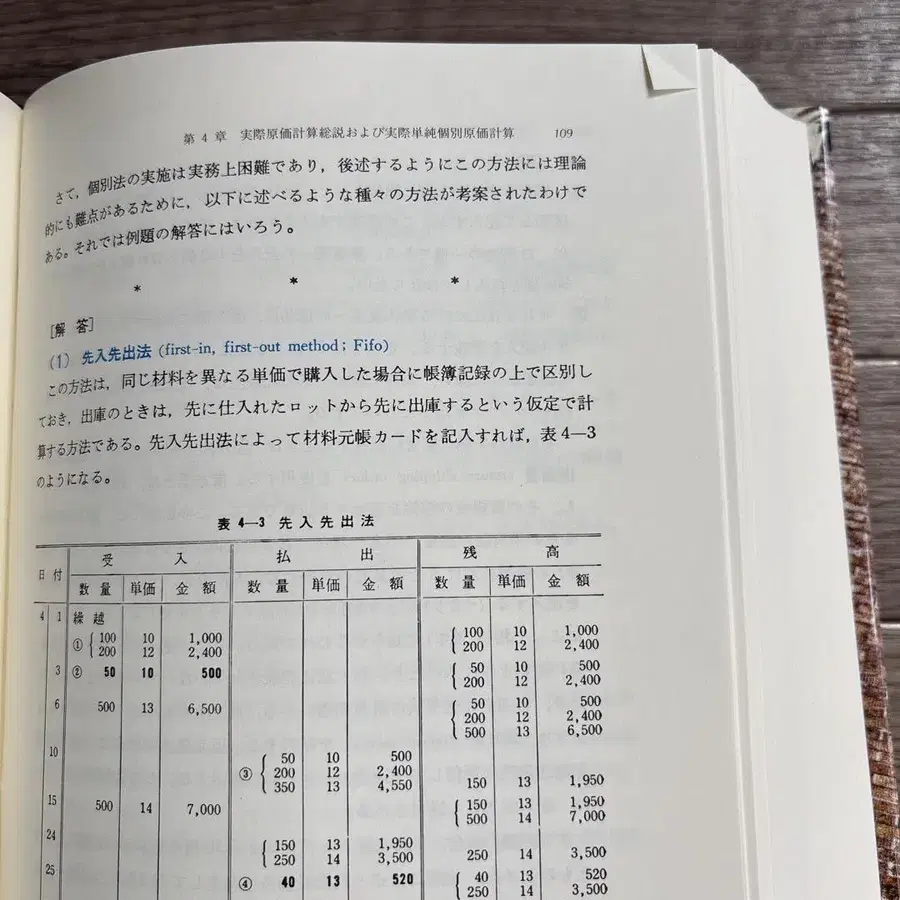 第 4 章　実際原価計算総説および実際単純個別原価計算　109
さて，個別法の実施は実務上困難であり，後述するようにこの方法には理論
的にも難点があるために，以下に述べるような種々の方法が考案されたわけで
ある。それでは例題の解答にはいろう。
*　*　*
[解　答]
(1) 先入先出法 (first-in, first-out method ; Fifo)
この方法は，同じ材料を異なる単価で購入した場合に帳簿記録の上で区別し
ておき，出庫のときは，先に仕入れたロットから先に出庫するという仮定で計
算する方法である。先入先出法によって材料元帳カードを記入すれば，表4—3
のようになる。
表 4—3 先 入 先 出 法
日 付　受　入　払　出　残　高
数 量　単価　金 額　数 量　単価　金 額　数 量　単価　金 額
4　1　繰 越
① { 100　10　1,000　{ 100　10　1,000
200　12　2,400　200　12　2,400
3　② 50　10　500　{ 50　10　500
200　12　2,400
6　500　13　6,500　{ 50　10　500
200　12　2,400
500　13　6,500
10　③ { 50　10　500
200　12　2,400
350　13　4,550　150　13　1,950
15　500　14　7,000　{ 150　13　1,950
500　14　7,000
24　{ 150　13　1,950
250　14　3,500　250　14　3,500
25　④ 40　13　520　{ 40　13　520
250　14　3,500